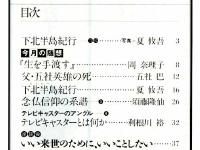 目次
下北半島紀行 写真 夏 攸吾 3
今月の随想
『生を手渡す』 岡 奈理子 8
父・五社英雄の死 五社 巴 12
下北半島紀行 夏 攸吾 16
念仏信仰の系譜 須藤隆仙 26
テレビキャスターのアングル
テレビキャスターとは何か 利根川 裕 32
いい来世のために、いいことしたい 37